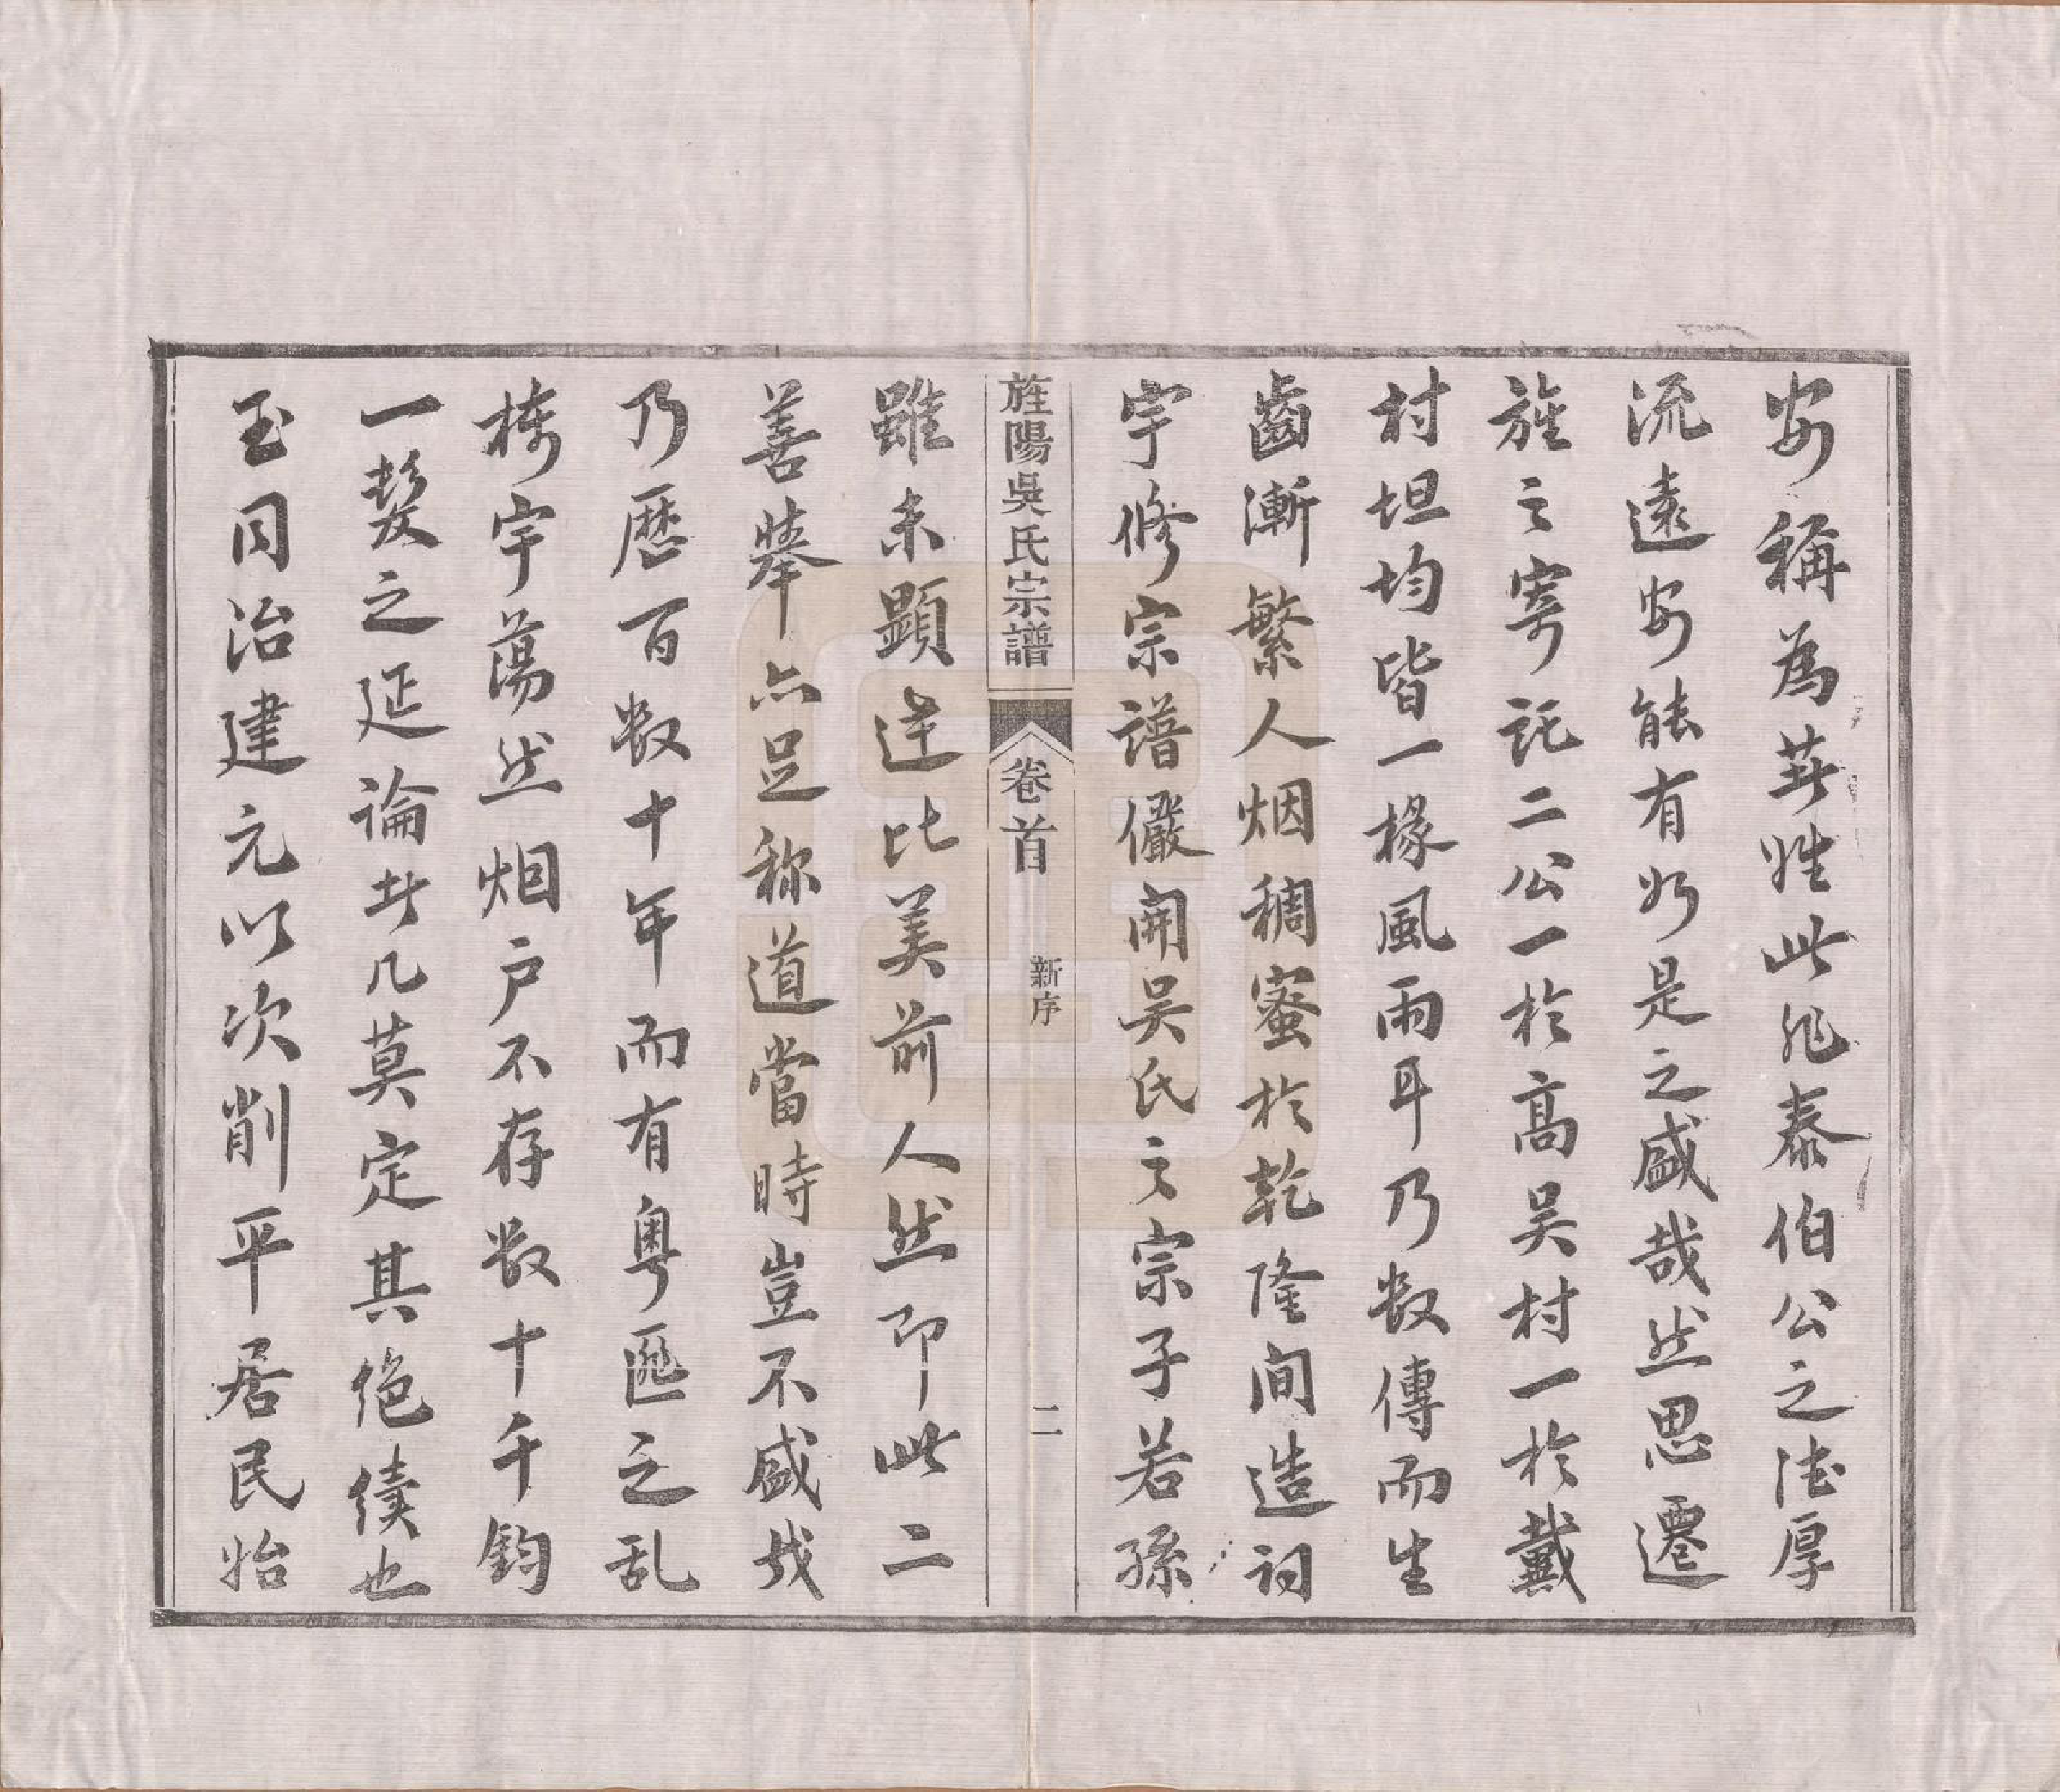 安稱為莽姓此非泰伯公之德厚
流遠安能有如是之盛哉然思遷
旌之寄託二公一於高吴村一於戴
村坦均皆一椽風雨耳乃数傳而生
齒漸繁人烟稠蜜於乾隆间造祠
宇修宗譜儼開吴氏之宗子若孫
旌陽吳氏宗譜 卷首 新序 二
雖未顕逹比美前人然即此二
善舉亦足称道當時豈不盛哉
乃歷百数十年而有粤匪之乱
栋宇蕩然烟户不存数十千鈞
一髮之延論者几莫定其绝續也
至同治建元以次削平居民始